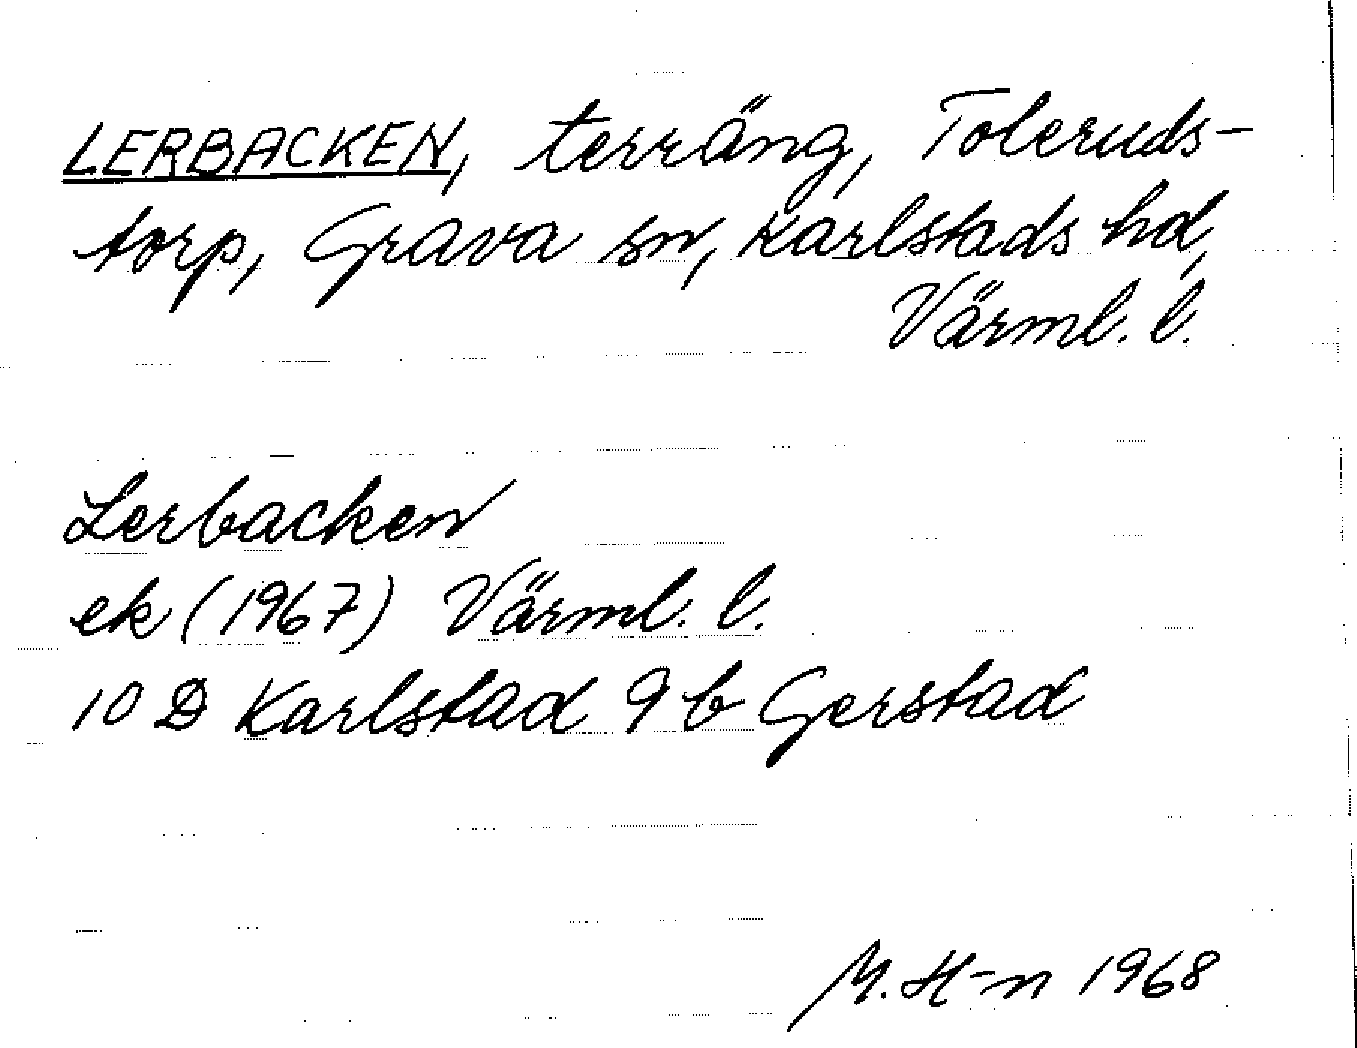 LERBACKEN, terräng, Toleruds-
torp, Grava sn, Karlstads hd,
Värml. l.
Lerbacken
ek (1967) Värml. l.
10 D Karlstad 9 b Gerstad
M. H-n 1968